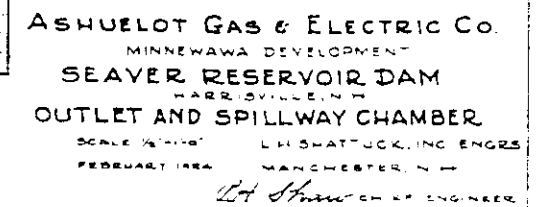 ASHUELOT GAS & ELECTRIC CO.
MINNEWAWA DEVELOPMENT
SEAVER RESERVOIR DAM
HARRISVILLE, N H
OUTLET AND SPILLWAY CHAMBER
SCALE L. H. SHATTUCK, INC ENGRS
FEBRUARY MANCHESTER, N H
CHIEF ENGINEER